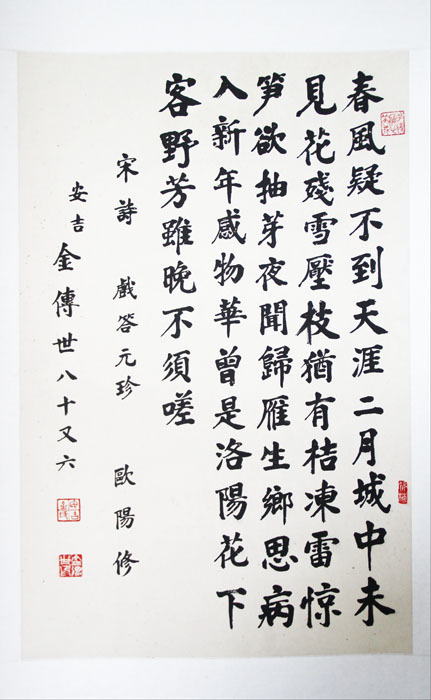 春風疑不到天涯二月城中未
見花殘雪壓枝猶有桔凍雷惊
笋欲抽芽夜聞歸雁生鄉思病
入新年感物華曾是洛陽花下
客野芳雖晚不須嗟
宋詩 戲答元珍 歐陽修
安吉 金傳世八十又六